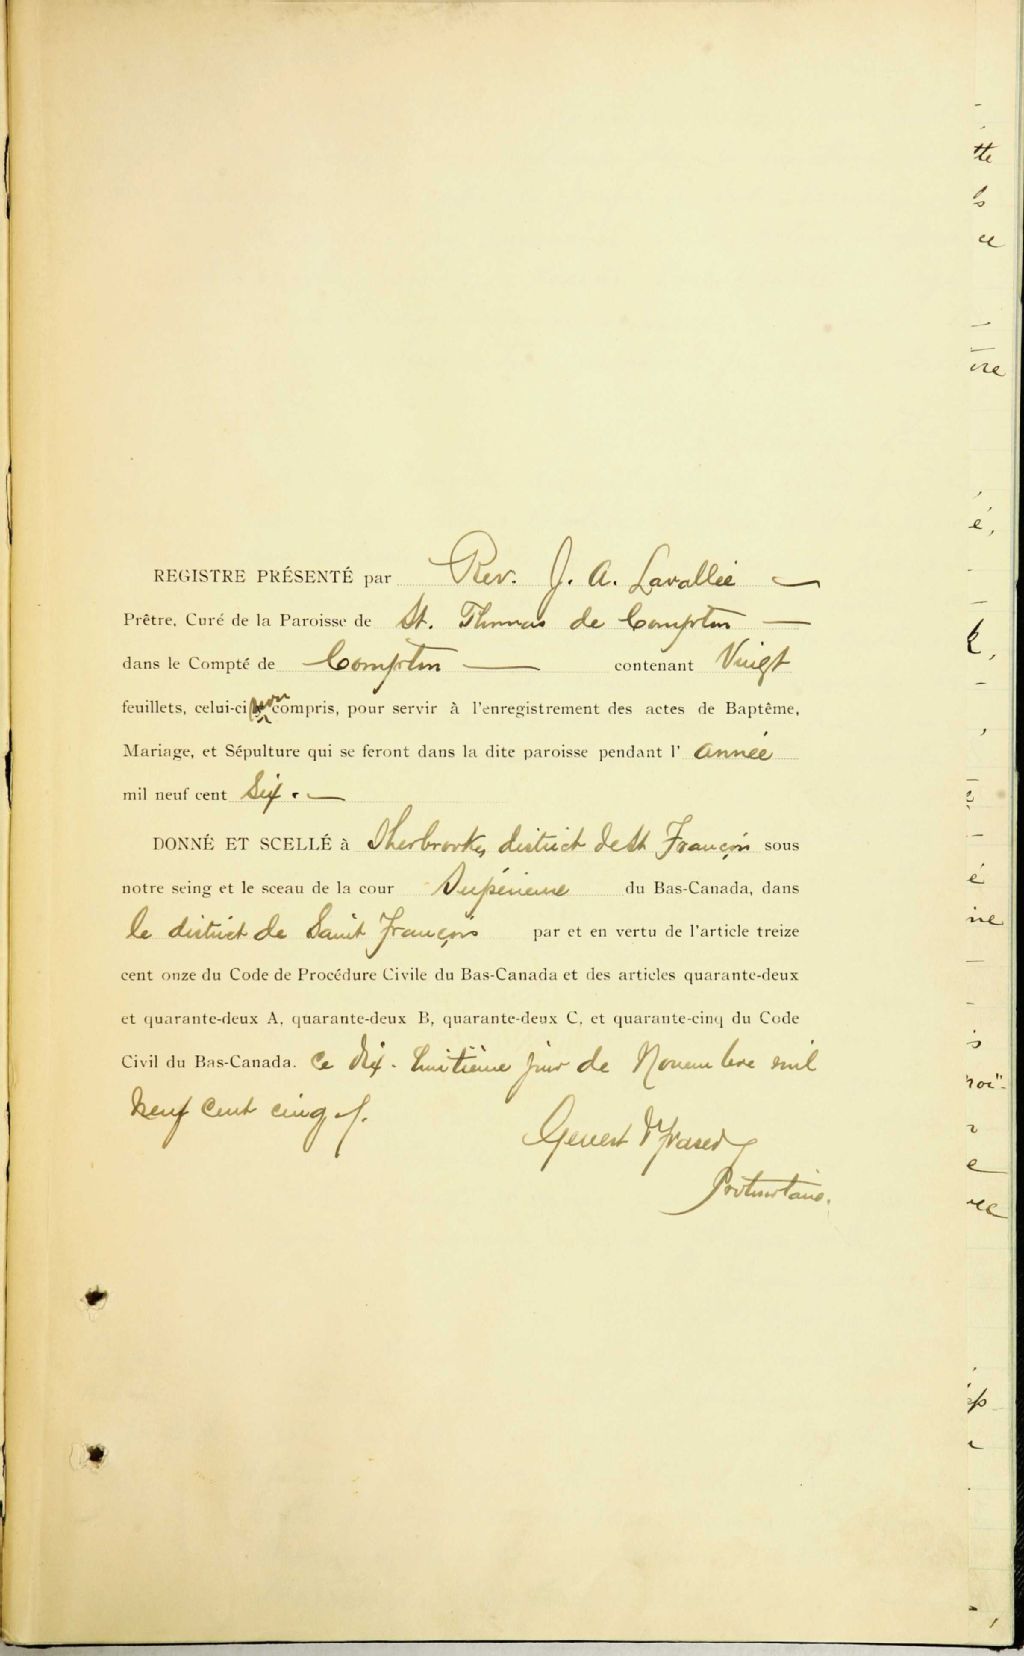 REGISTRE PRÉSENTÉ par Rev. J. A. Lavallée —
Prêtre, Curé de la Paroisse de St. Thomas de Compton —
dans le Compté de Compton — contenant Vingt
feuillets, celui-ci non compris, pour servir à l'enregistrement des actes de Baptême,
Mariage, et Sépulture qui se feront dans la dite paroisse pendant l' année
mil neuf cent Six . —
DONNÉ ET SCELLÉ à Sherbrooke, district de St François sous
notre seing et le sceau de la cour Supérieure du Bas-Canada, dans
le district de Saint François par et en vertu de l'article treize
cent onze du Code de Procédure Civile du Bas-Canada et des articles quarante-deux
et quarante-deux A, quarante-deux B, quarante-deux C, et quarante-cinq du Code
Civil du Bas-Canada. Ce dix-huitième jour de Novembre mil
neuf cent cinq
Genest & Fraser
Protonotaire.